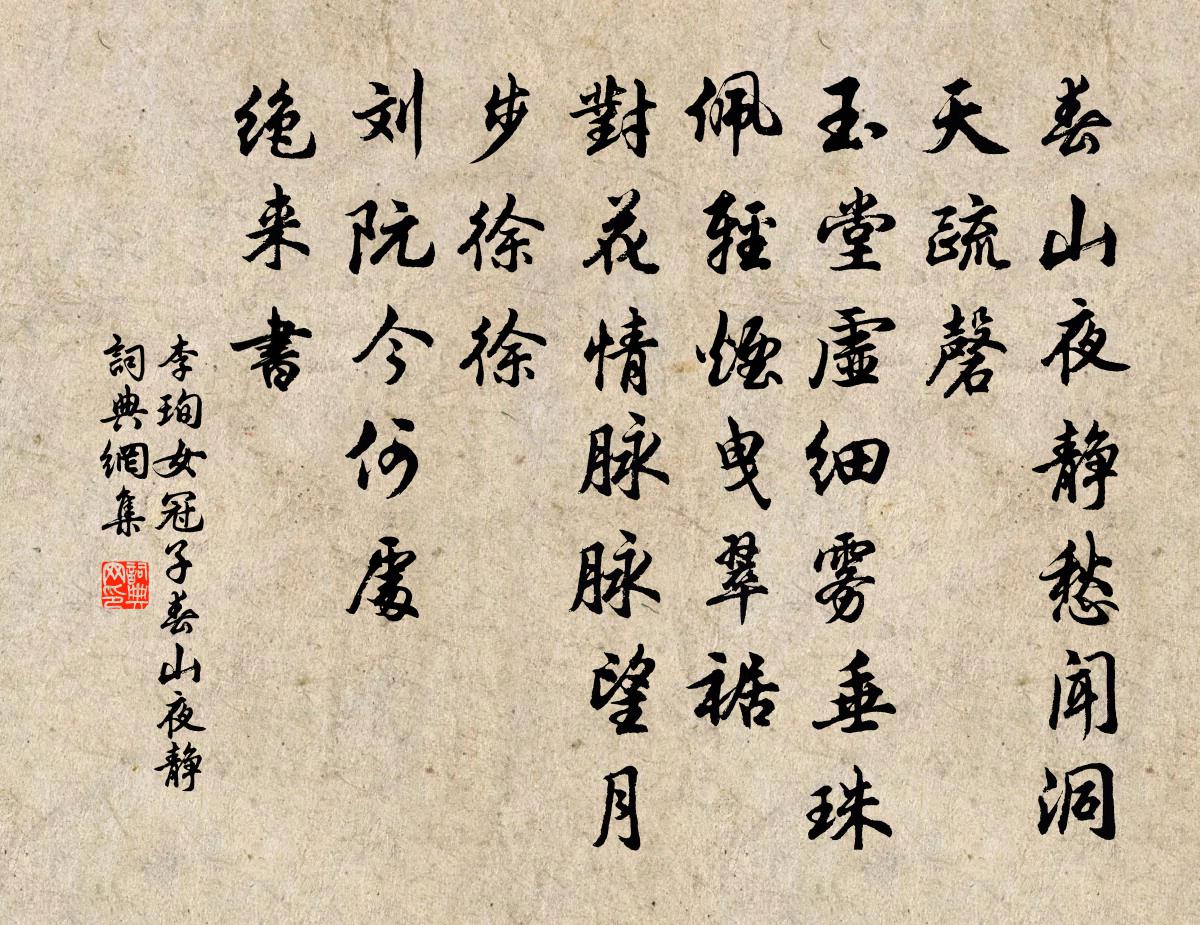 春山夜静愁闻洞
天疏磬
玉堂虚细雾垂珠
佩轻烟曳翠裾
對花情脉脉望月
步徐徐
刘阮今何處
绝来書
李珣女冠子春山夜静
詞典網集
詞典网印